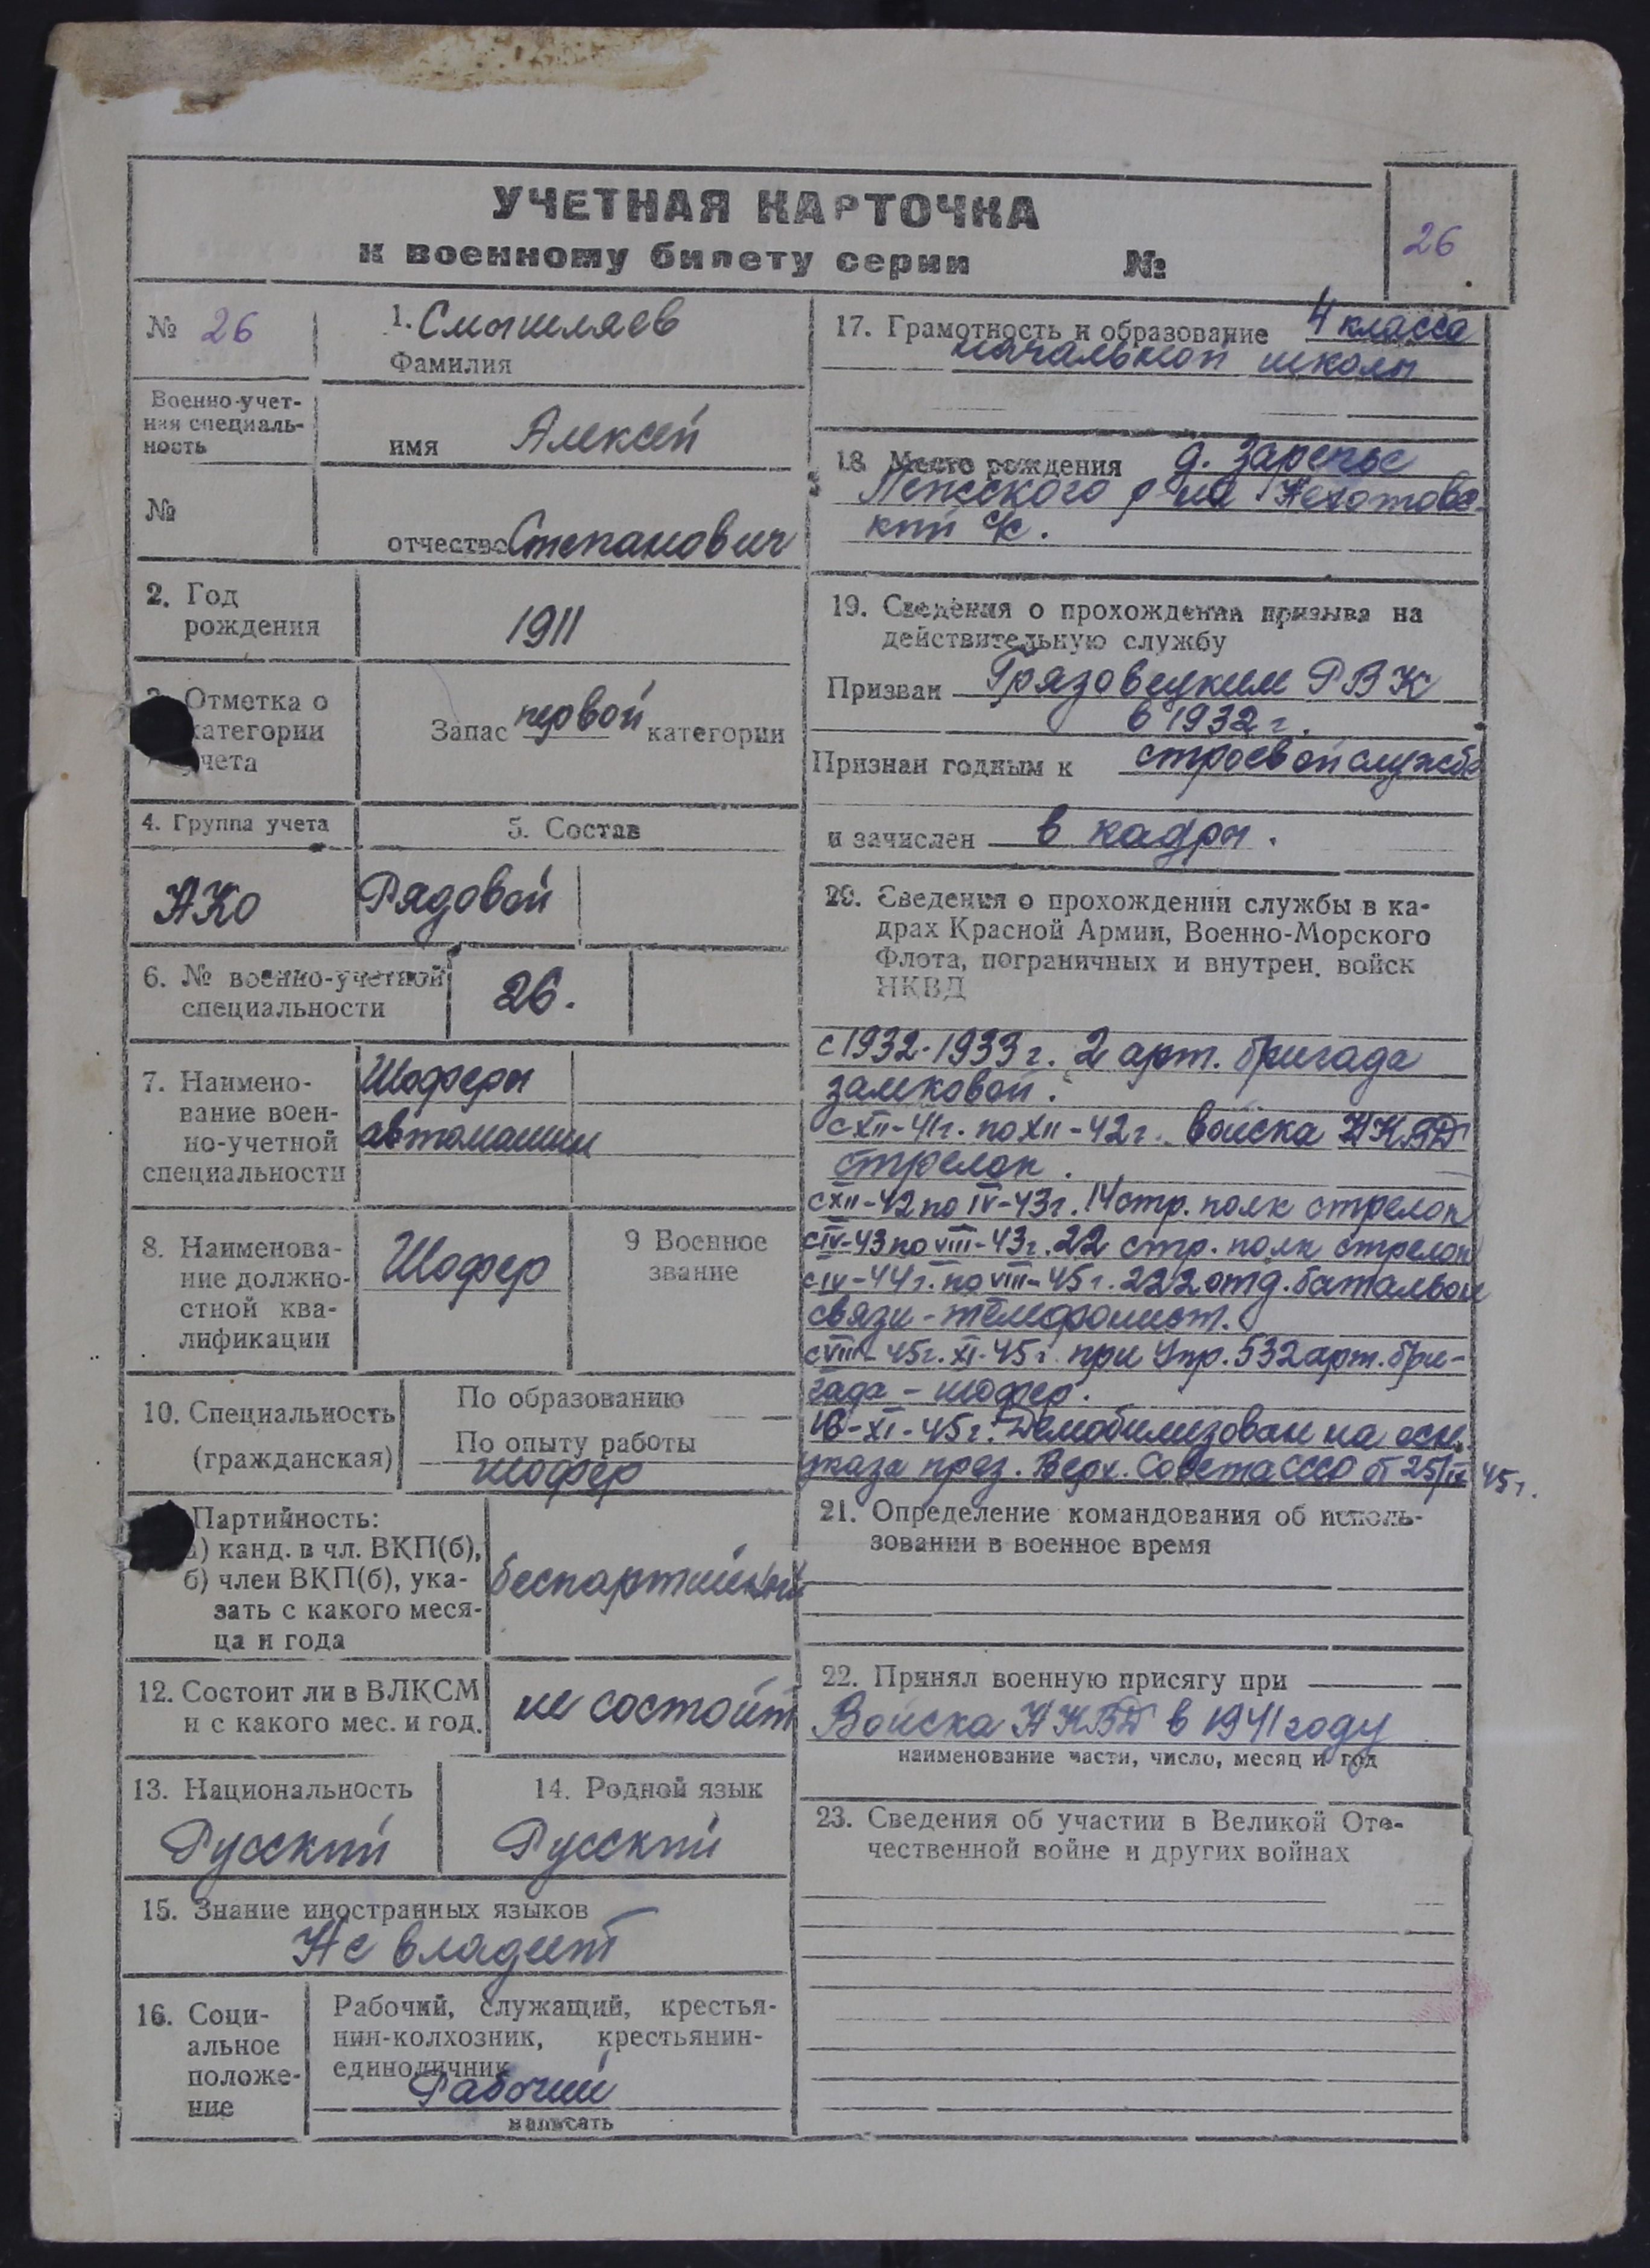 УЧЕТНАЯ КАРТОЧКА
к военному билету серии №
26
№ 26
1. Смышляев
Фамилия
Военно-учет-
ная специаль-
ность
имя Алексей
№
отчество Степанович
2. Год
рождения
1911
Отметка о
категории
учета
Запас первой категории
4. Группа учета
5. Состав
АКо
Рядовой
6. № военно-учетной
специальности
26.
7. Наимено-
вание воен-
но-учетной
специальности
Шоферы
автомашин
8. Наименова-
ние должно-
стной ква-
лификации
Шофер
9 Военное
звание
10. Специальность
(гражданская)
По образованию —
По опыту работы
шофер
Партийность:
а) канд. в чл. ВКП(б),
б) член ВКП(б), ука-
зать с какого меся-
ца и года
беспартийный
12. Состоит ли в ВЛКСМ
и с какого мес. и год.
не состоит
13. Национальность
Русский
14. Родной язык
Русский
15. Знание иностранных языков
Не владеет
16. Соци-
альное
положе-
ние
Рабочий, служащий, крестья-
нин-колхозник, крестьянин-
единоличник
Рабочий
написать
17. Грамотность и образование 4 класса
начальной школы
18 Место рождения д. Заречье
р-на
кий с/с.
19. Сведения о прохождении призыва на
действительную службу
Призван Грязовецким РВК
в 1932 г.
Признан годным к строевой службе
и зачислен в кадры.
20. Сведения о прохождении службы в ка-
драх Красной Армии, Военно-Морского
Флота, пограничных и внутрен. войск
НКВД
с 1932-1933 г. 2 арт. бригада
замковой.
с XII-41г. по XII-42г. войска НКВД
стрелок.
с XII-42 по IV-43г. 14 стр. полк стрелок
с IV-43 по VIII-43г. 22 стр. полк стрелок
с IV-44г. по VIII-45г. 222 отд. батальон
связи - телефонист.
с VIII-45г. XI-45г. при Упр. 532 арт. бри-
гада - шофер.
XI-45г. Демобилизован на осн.
указа през. Верх. Совета СССР от 25/IX 45г.
21. Определение командования об исполь-
зовании в военное время
22. Принял военную присягу при
Войска НКВД в 1941 году
наименование части, число, месяц и год
23. Сведения об участии в Великой Оте-
чественной войне и других войнах